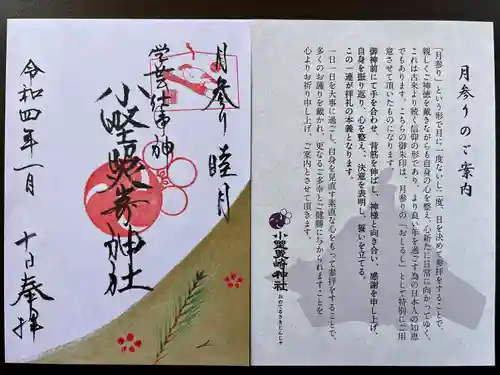 月参り 睦月
学芸仕事の神
小野照崎神社
令和四年一月 十日 奉拝
月参りのご案内
「月参り」という形で月に一度ないし二度、日を決めて参拝をすることで、
親しくご神徳を戴きながらも自身の心を整え、心新たに日常に向かってゆく、
これは古来より続く信仰の形であり、より良い年を過ごす為の日本人の知恵
でもあります。こちらの御朱印は、月参りの「おしるし」として特別にご用
意させて頂いたものになります。
御神前にて手を合わせ、背筋を伸ばし、神様と向き合い、感謝を申し上げ、
自身を振り返り、心を整え、決意を表明し、誓いを立てる。
この一連が拝礼の本義となります。
一日一日を大事に過ごし、自身を見直す素直な心をもって参拝をすることで、
多くのお護りを戴かれ、更なるご多幸とご健勝に与かられますことを
心よりお祈り申し上げ、ご案内とさせて頂きます。
小野照崎神社
おのてるさきじんじゃ